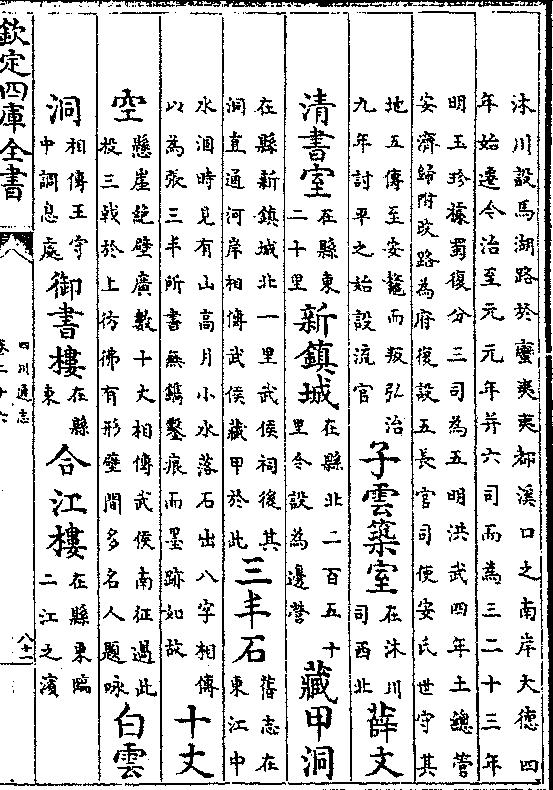 沐川設馬湖路於蠻夷夷都溪口之南岸大德四
年始遷今治至元元年并六司而為三二十三年
明玉珍據蜀復分三司為五明洪武四年土總管
安濟歸附改路為府復設五長官司使安氏世守其
地五傳至安鼇而叛弘治九年討平之始設流官子雲築室在沐川司西北薛文
清書室在縣東二十里新鎮城在縣北二百五十里今設為邊營藏甲洞
在縣新鎮城北一里武侯祠後其洞直通河岸相傳武侯藏甲於此三丰石舊志在東江中
水涸時見有山高月小水落石出八字相傳以為張三丰所書無鐫鑿痕而墨跡如故十丈
空懸崖絶壁廣數十丈相傳武侯南征過此投三戟於上彷彿有形壁間多名人題咏白雲
洞相傳王守中調息處御書樓在縣東合江樓在縣東臨二江之濱
欽定四庫全書
四川通志
卷二十六
八十一